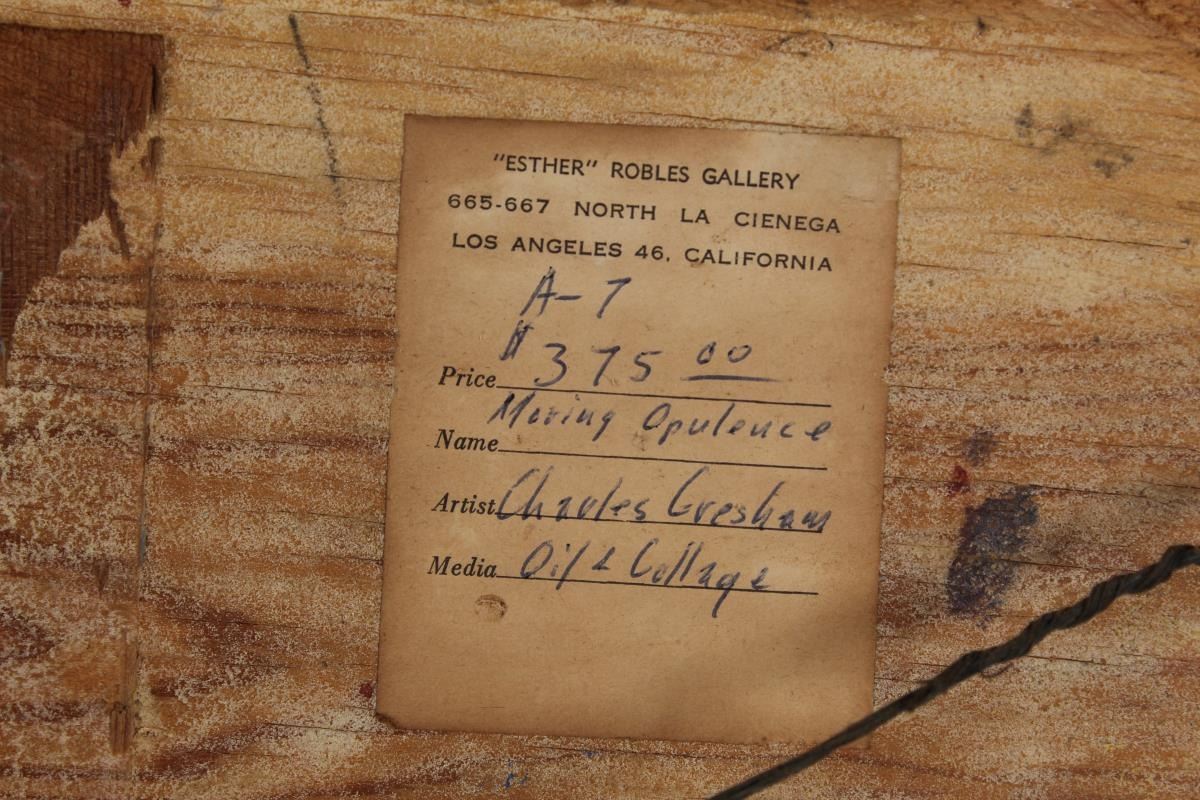 "ESTHER" ROBLES GALLERY
665-667 NORTH LA CIENEGA
LOS ANGELES 46, CALIFORNIA
A-7
Price $375 00
Name Moving Opulence
Artist Charles Gresham
Media Oil & Collage